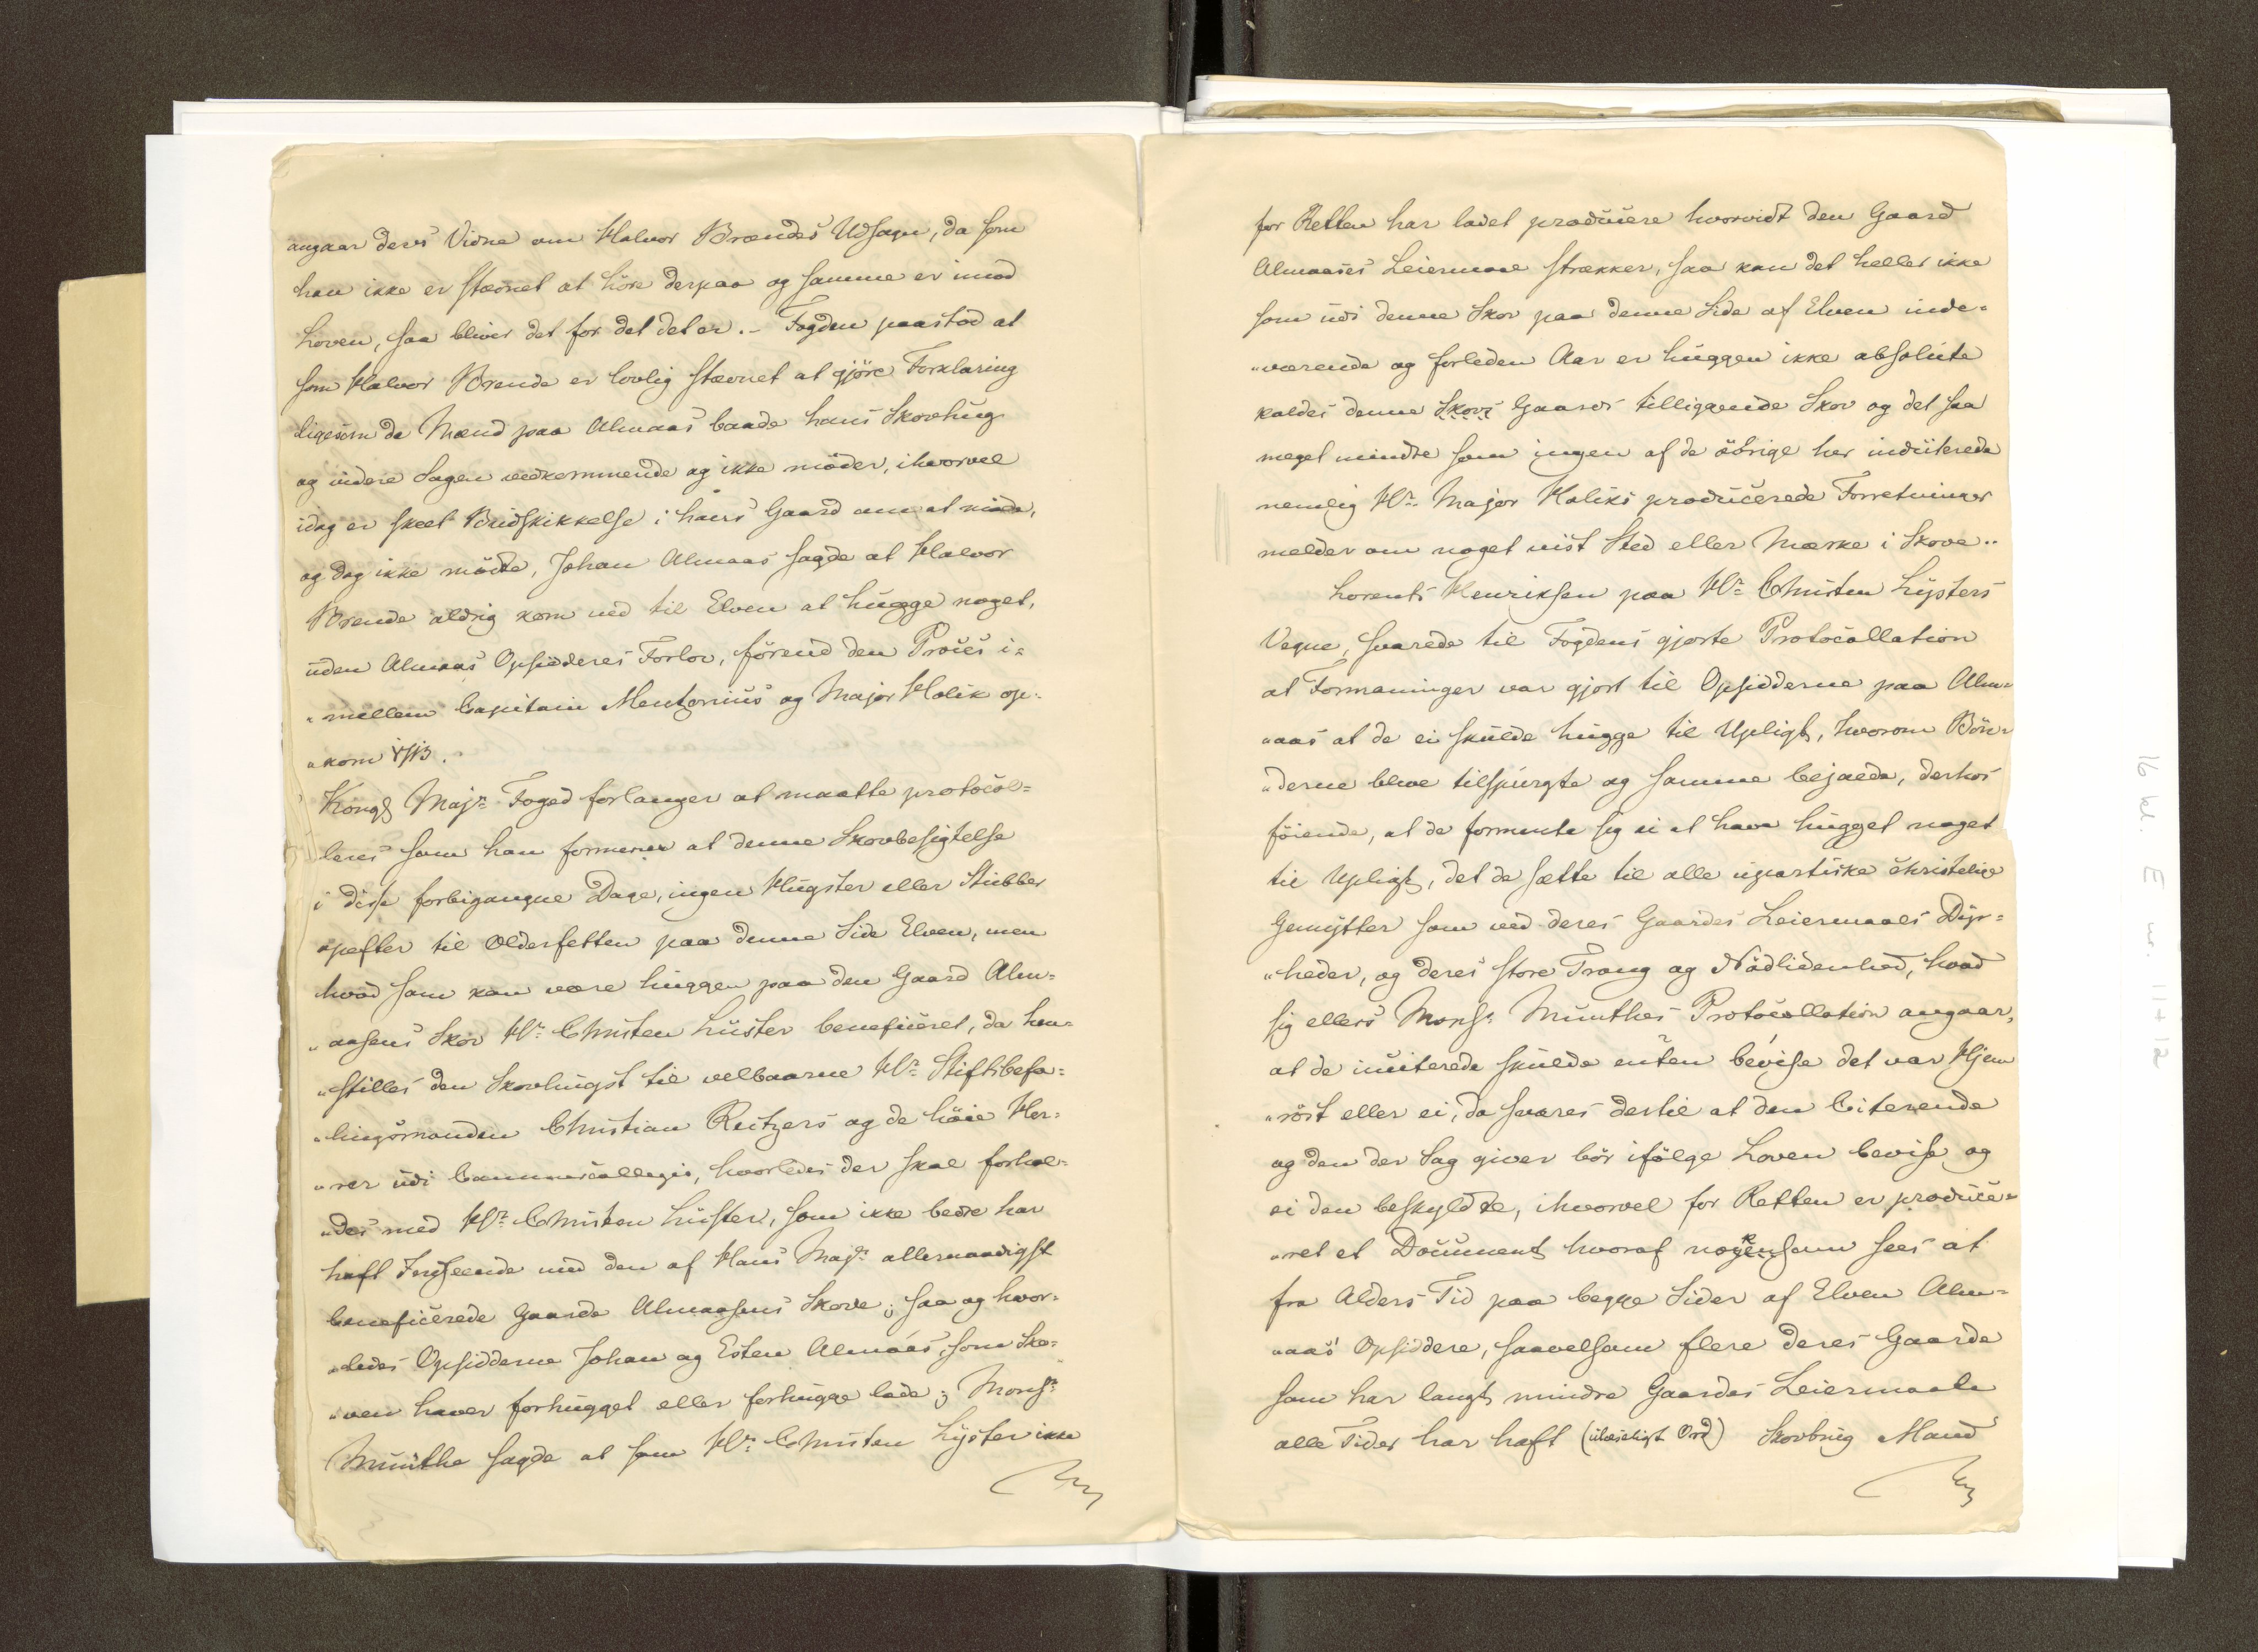 angaar deres Vidne om Halvor Brændes Udsagn, da som
han ikke er stævnet at høre derpaa og samme er imod
Loven, saa bliver det for det det er. – Fogden paastod at
som Halvor Brende er lovlig stævnet at gjöre Forklaring
ligesom de Mænd paa Almaas baade hans Skovhug
og videre Sagen vedkommende og ikke möder, ihvorvel
idag er skeet Budskikkelse i hans Gaard om at möde,
og dog ikke mödte, Johan Almaas sagde at Halvor
Brende aldrig kom ned til Elven at hugge noget,
uden Almaas Opsidderes Forlov, förend den Proces i=
„mellem Capitain Mentzonius og Major Kolik op=
„kom
Kongl Majr Foged forlanger at maatte protocol=
leres som han formener at denne Skovbesigtelse
i disse forbigangne Dage, ingen Hugster eller Stubber
opefter til Oldersetten paa denne Side Elven, men
hvad som kan være huggen paa den Gaard Alm=
„aasens Skov Hr: Christen Lüster beneficeret, da hen=
„stilles den Skovhugst til velbaarne Hr: Stiftsbefa=
„lingsmanden Christian Reitzers og de höie Her=
„rer udi Cammercollegie, hvorledes der skal forhol=
„des med Hr: Christen Lüster, som ikke bedre har
haft Indseende med den af Hans Majr: allernaadigst
beneficerede Gaarde Almaasens Skove; saa og hvor=
„ledes Opsidderne Johan og Esten Almaas, som Sko=
„ven haver forhugget eller forhugge lade; Monsr:
Münthe sagde at som Hr: Christen Lyster ikke
for Retten har ladet producere hvorvidt den Gaard
Almaases Leiermaal strækker, saa kan det heller ikke
som udi denne Skov paa denne Side af Elven inde=
„værende og forleden Aar er huggen ikke absolute
kaldes denne Skovs Gaards tilliggende Skov og det saa
meget mindre som ingen af de øbrige her
nemlig Hr: Major Koliks producerede Forretninger
melder om noget vist Sted eller Mærke i Skove..
Lorents Henriksen paa Hr: Christen Lysters
Vegne, svarede til Fogdens gjorte Protocollation
at Formaninger var gjort til Opsidderne paa Alm=
„aas at de ei skulde hugge til Upligt, hvorom Bön=
„derne bleve tilspurgte og samme bejaede, derhos
föiende, at de formente sig ei at have hugget noget
til Upligt, det de sætte til alle upartiske christelige
Gemytter som ved deres Gaardes Leiermaals Dyr=
„heder, og deres store Trang og Nödlidenhed, hvad
sig ellers Monsr: Münthes Protocollation angaar,
at de citerede skulde enten bevise det var Hjem
„röst eller ei, da svares dertil at den Citerende
og den der Sag giver bör ifölge Loven bevise og
ei den beskyldte, ihvorvel for Retten er produce=
„ret et Document hvoraf noksom sees at
fra Alders Tid paa begge Sider af Elven Alm=
„aas' Opsiddere, saavelsom flere deres Gaarde
som har langt mindre Gaardes Leiermaale
alle Tider har haft (ulæseligt Ord) Skovbrug Mand
16 kl. E nr. 11+12